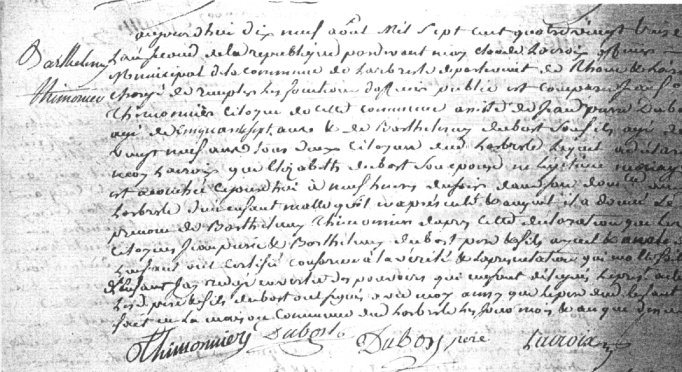 aujourdhui dix neuf aout Mil Sept cent quatre vingt treize
Barthelmy
Thimonier
L'an second de la republique pardevant moy Claude Lacroix officier
Municipal de la commune de Larbresle departement de Rhone & Loire
Chargé de remplir les fonctions d'officier public est comparu
Thimonnier Citoyen de cette commune assisté de Jean pierre Dubost
agé de Cinquante sept ans & de Barthelmy dubost Son fils agé de
vingt neuf ans tous deux Citoyens dud Larbresle Lequel a declaré
a moy Lacroix que Elizabeth dubost Son epouse en legitime mariage
est accouchée cejourdhui à neuf heures du dans Son domicile
Larbresle d'un enfant malle qu'il m'a presenté & auquel il a donné Le
prenom de Barthelmy Thimonnier d'apres cette declaration que les
Citoyens Jean pierre & Barthelmy dubost pere & fils
L'enfant ont certifié conforme à la verité & la representation qui m'a été faite
de L'enfant J'ay redigé en vertu des pouvoirs qui me sont delegués Le present acte
Lesd pere & fils dubost ont signé avec moy ainsy que le pere dud Enfant
fait en La maison Commune dud Larbresle Les jour mois & an que dessus
Thimonnier Dubost Dubost pere Lacroix